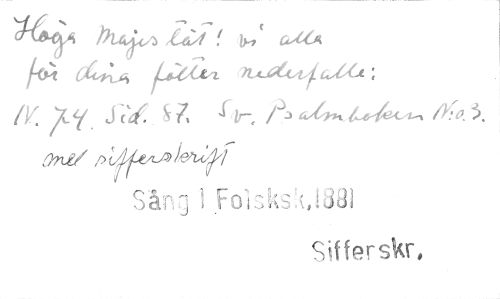 Höga Majestät! vi alla
för dina fötter nederfalla:
N. 74. Sid. 87. Sv. Psalmboken N:o 3.
med sifferskrift
Sång i Folsksk.1881
Sifferskr.